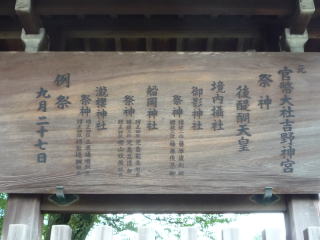 元
官幣大社吉野神宮
祭神
後醍醐天皇
境内摂社
御影神社
祭神
船岡神社
祭神
瀧櫻神社
祭神
例祭
九月二十七日